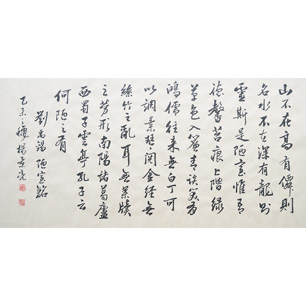 山不在高有僊則
名水不在深有龍則
靈斯是陋室惟吾
德馨苔痕上階綠
草色入簾青談笑有
鴻儒往來無白丁可
以調素琴閱金經無
絲竹之亂耳無案牘
之勞形南陽諸葛廬
西蜀子雲亭孔子云
何陋之有
劉禹錫陋室銘
乙未之穐楊